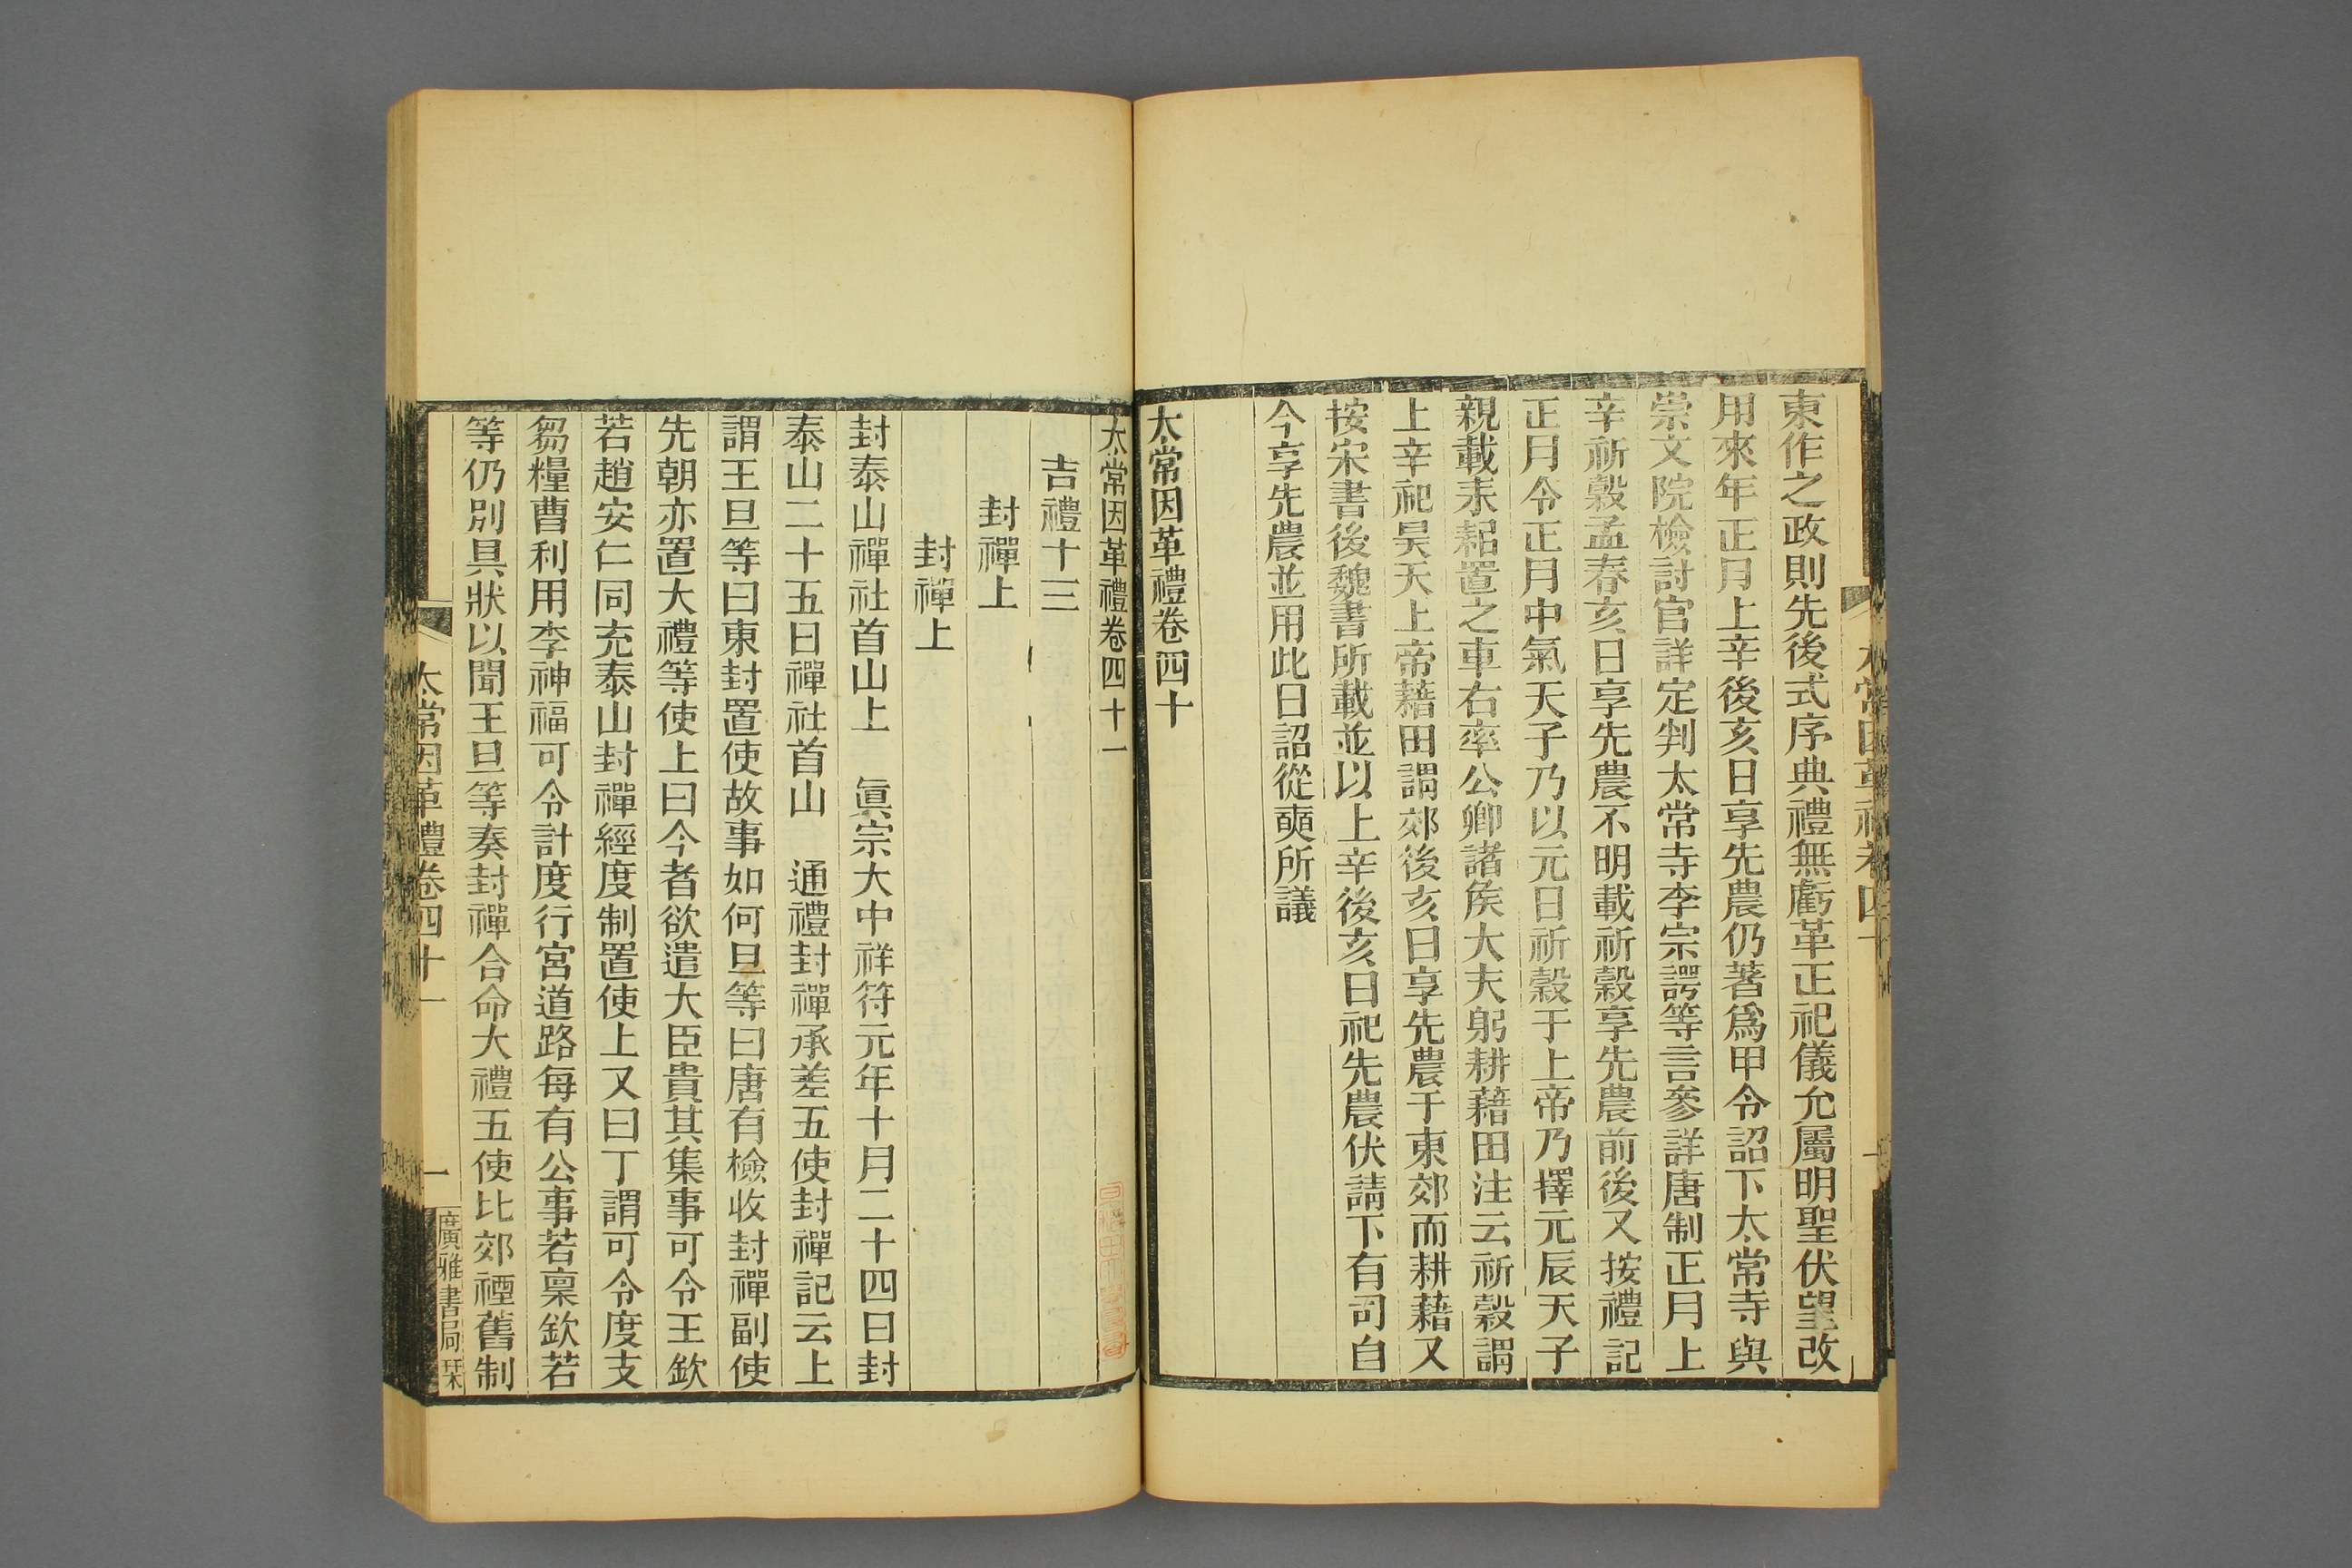 東作之政則先後式序典禮無虧革正祀儀允屬明聖伏望改
用來年正月上辛後亥日享先農仍著爲甲令詔下太常寺與
崇文院檢討官詳定判太常寺李宗諤等言參詳唐制正月上
辛祈穀孟春亥日享先農不明載祈穀享先農前後又按禮記
正月令正月中氣天子乃以元日祈穀于上帝乃擇元辰天子
親載耒耜置之車右率公卿諸侯大夫躬耕藉田注云祈穀謂
上辛祀昊天上帝藉田謂郊後亥日享先農于東郊而耕藉又
按宋書後魏書所載並以上辛後亥日祀先農伏請下有司自
今享先農並用此日詔從奭所議
太常因革禮卷四十
太常因革禮卷四十一
吉禮十三
封禪上
封禪上
封泰山禪社首山上　眞宗大中祥符元年十月二十四日封
泰山二十五日禪社首山　通禮封禪承差五使封禪記云上
謂王旦等曰東封置使故事如何旦等曰唐有檢收封禪副使
先朝亦置大禮等使上曰今者欲遣大臣貴其集事可令王欽
若趙安仁同充泰山封禪經度制置使上又曰丁謂可令度支
芻糧曹利用李神福可令計度行宮道路每有公事若稟欽若
等仍別具狀以聞王旦等奏封禪合命大禮五使比郊禋舊制
太常因革禮卷四十一
一
廣雅書局栞